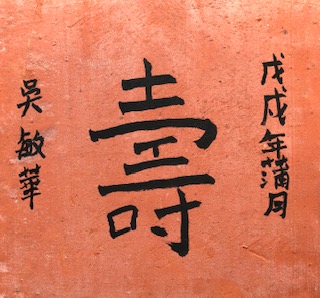 戊戌年蒲月
壽
吴敏華